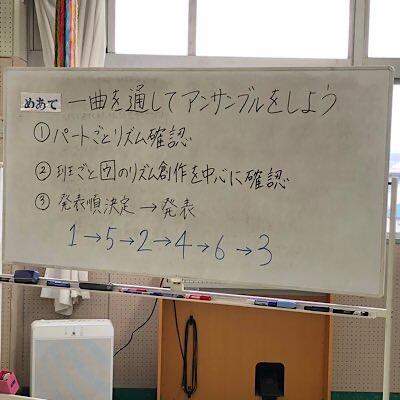 めあて 一曲を通してアンサンブルをしよう
① パートごとリズム確認
② 班ごとウのリズム創作を中心に確認
③ 発表順決定→発表
1→5→2→4→6→3